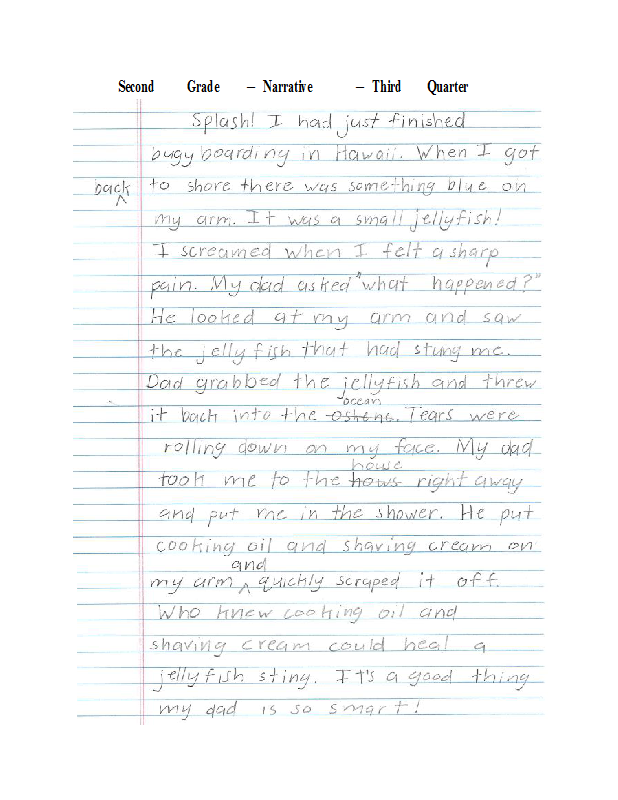 Second Grade – Narrative – Third Quarter
Splash! I had just finished
bugy boarding in Hawaii. When I got
back to shore there was something blue on
my arm. It was a small jellyfish!
I screamed when I felt a sharp
pain. My dad asked "what happened?"
He looked at my arm and saw
the jelly fish that had stung me.
Dad grabbed the jellyfish and threw
ocean
it back into the ostens. Tears were
rolling down on my face. My dad
house
took me to the hows right away
and put me in the shower. He put
cooking oil and shaving cream on
and
my arm quickly scraped it off.
Who knew cooking oil and
shaving cream could heal a
jelly fish sting. It's a good thing
my dad is so smart!